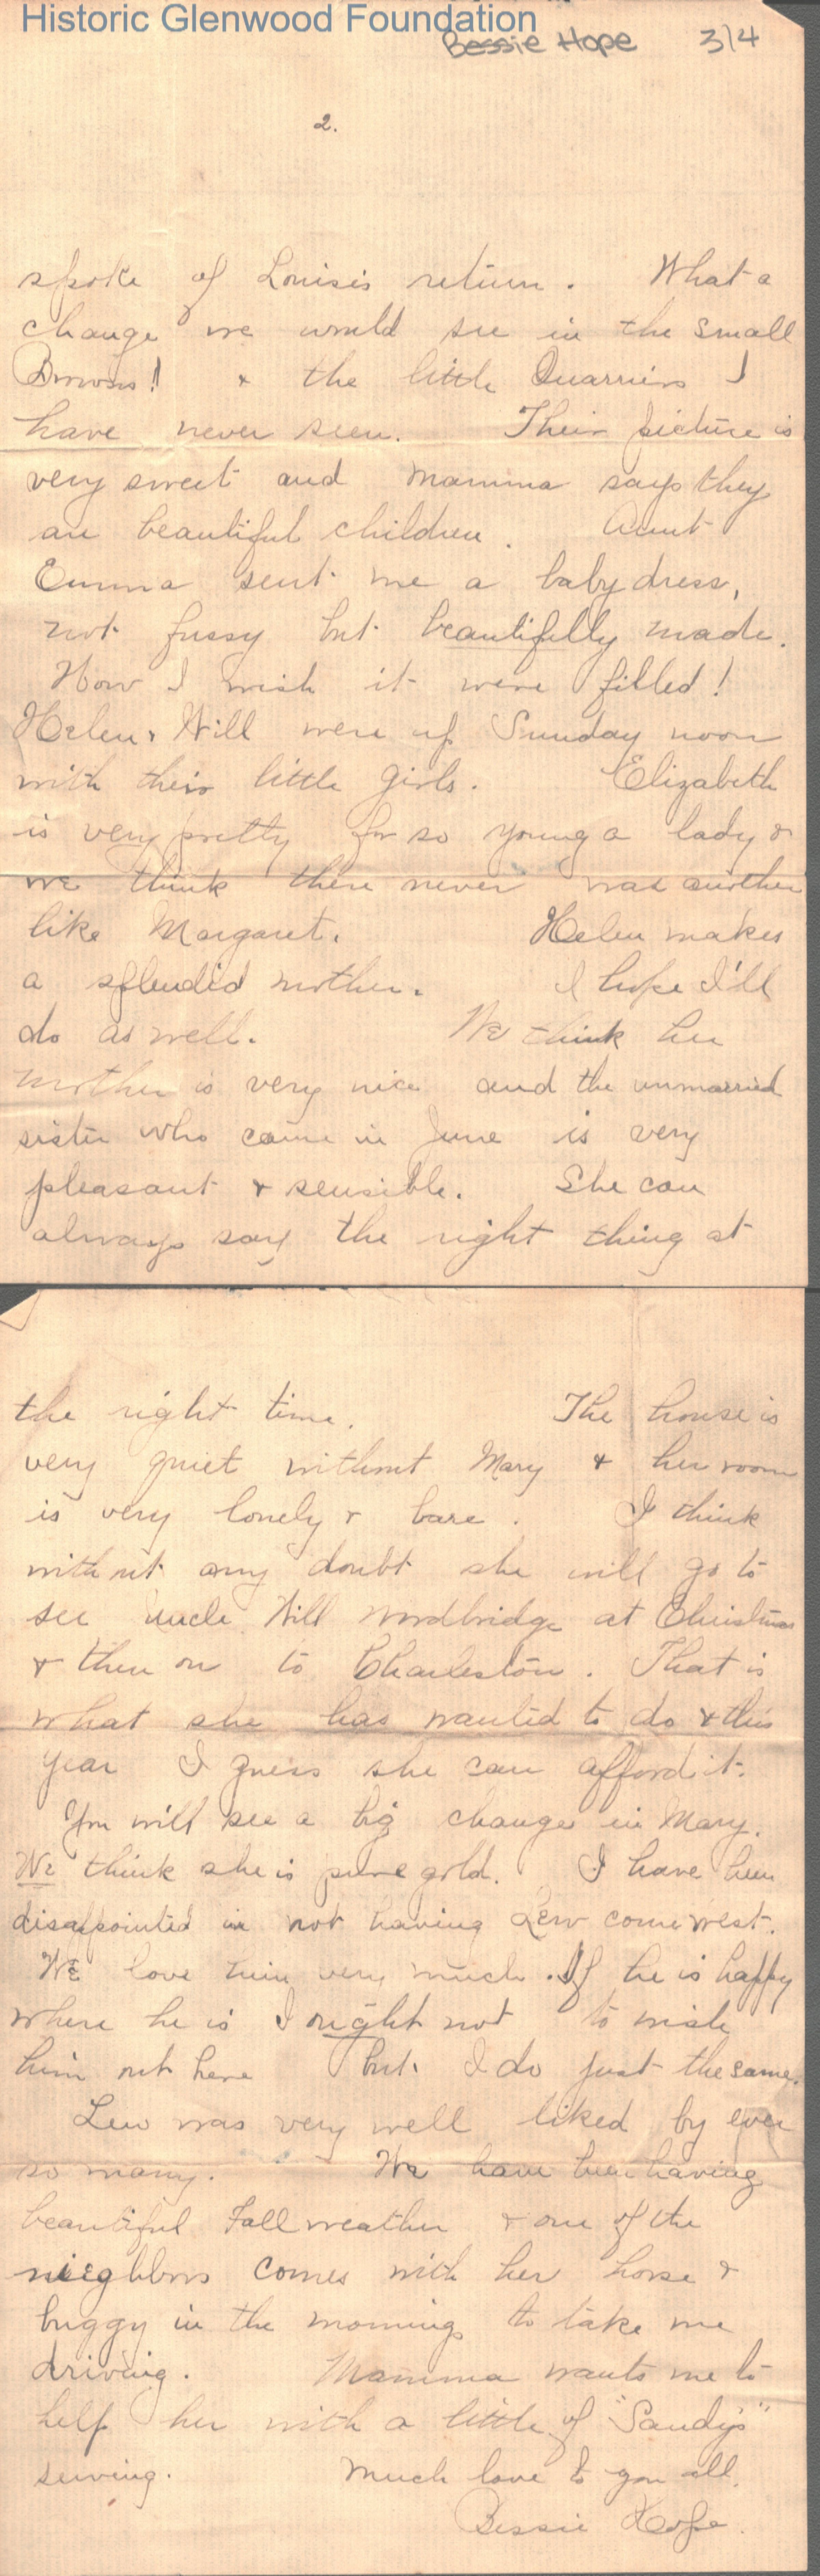 Historic Glenwood Foundation
Bessie Hope 3/4
2.
spoke of Louise's return. What a
change we would see in the small
Browns! & the little Quarriers I
have never seen. Their picture is
very sweet and Mamma says they
are beautiful children. Aunt
Emma sent me a baby dress,
not fussy but beautifully made.
How I wish it were filled!
Helen & Will were up Sunday noon
with their little girls. Elizabeth
is very pretty for so young a lady &
we think there never was another
like Margaret. Helen makes
a splendid mother. I hope I'll
do as well. We think her
mother is very nice and the unmarried
sister who came in June is very
pleasant & sensible. She can
always say the right thing at
the right time. The house is
very quiet without Mary & her room
is very lonely & bare. I think
without any doubt she will go to
see Uncle Will Woodbridge at Christmas
& then on to Charleston. That is
what she has wanted to do & this
year I guess she can afford it.
You will see a big change in Mary.
We think she is pure gold. I have been
disappointed in not having Lew come west.
We love him very much. If he is happy
where he is I ought not to wish
him out here but I do just the same.
Lew was very well liked by ever
so many. We have been having
beautiful Fall weather & one of the
nieghbors comes with her horse &
buggy in the mornings to take me
driving. Mamma wants me to
help her with a little of "Sandy's"
sewing. Much love to you all.
Bessie Hope.